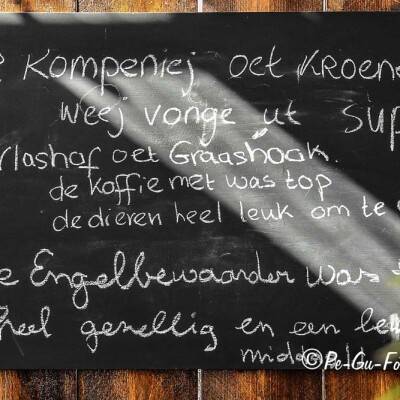 Kompeniej oet Kroene
weej vonge ut sup
Vlashof oet Graashoak.
de koffie met was top
de dieren heel leuk om te
Engelbewaarder was
heel gezellig en een
midd
©Pe-Gu-Fo